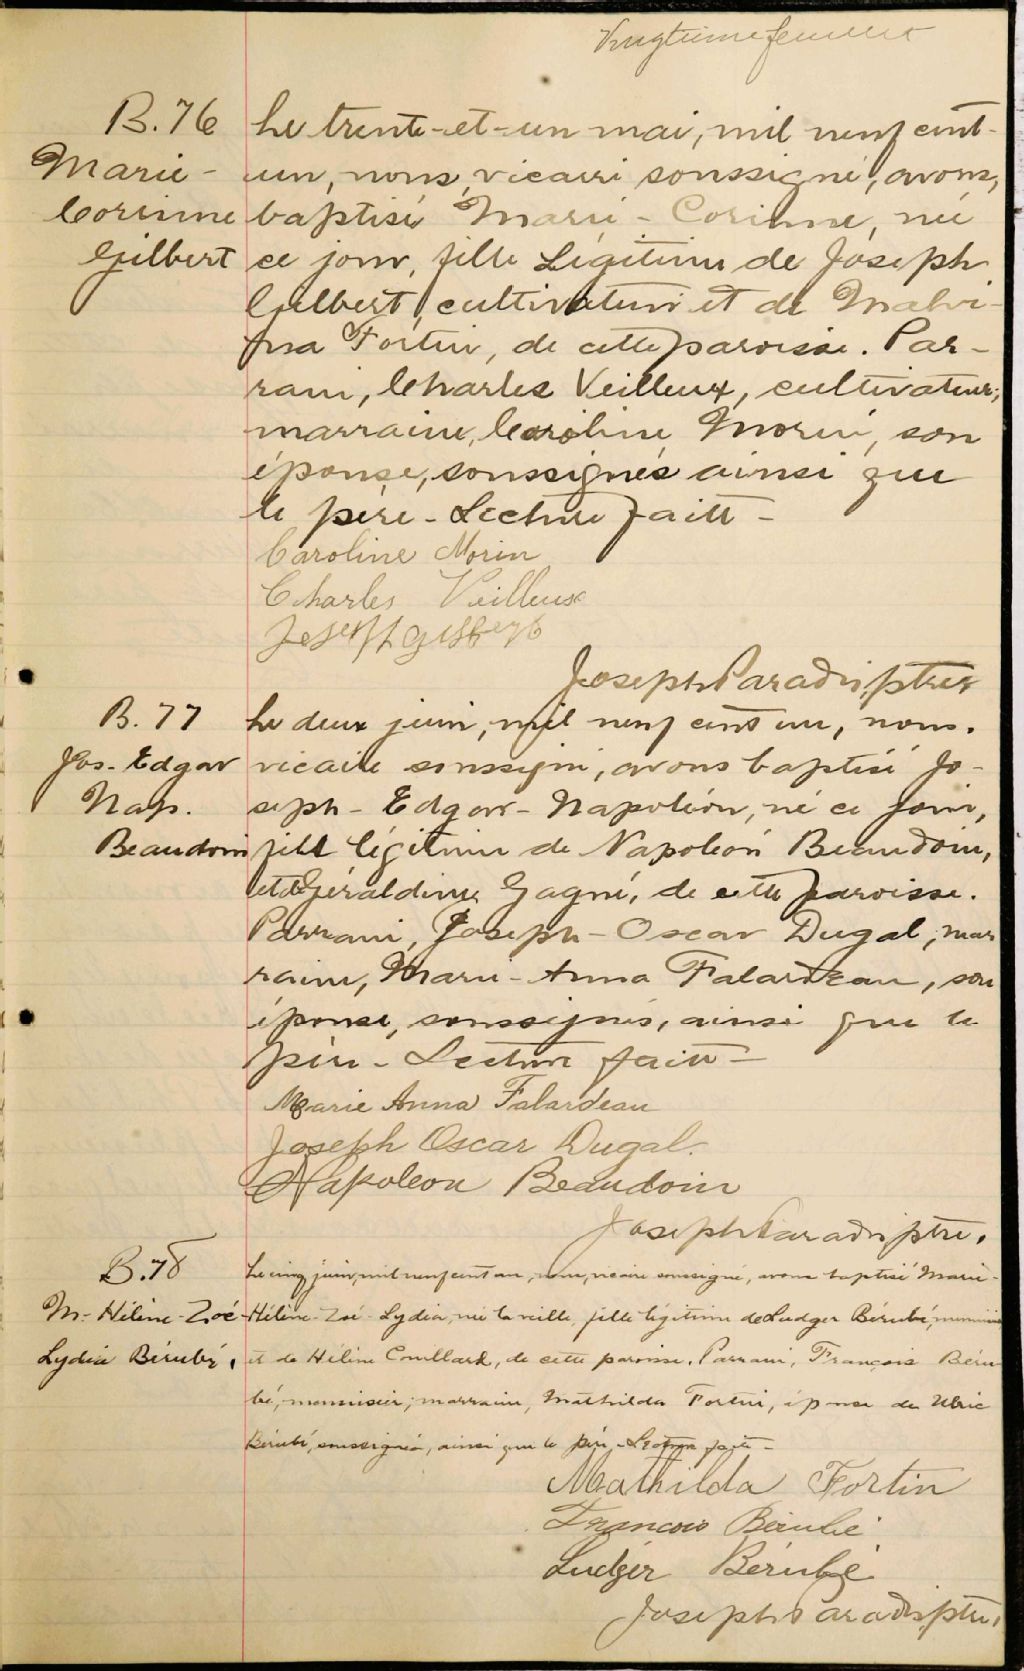 Vingtième feuillet
B. 76
Marie-
Corinne
Gilbert
Le trente-et-un mai, mil neuf cent-
un, nous, vicaire soussigné, avons,
baptisé Marie-Corinne, née
ce jour, fille légitime de Joseph
Gilbert, cultivateur et de Malvi-
na Fortin, de cette paroisse. Par-
rain, Charles Veilleux, cultivateur;
marraine, Caroline Morin, son
épouse, soussignés ainsi que
le père - Lecture faite -
Caroline Morin
Charles Veilleux
Joseph gilbert
Joseph Paradis, ptre
B. 77
Jos. Edgar
Nap.
Beaudoin
Le deux juin, mil neuf cent un, nous,
vicaire soussigné, avons baptisé Jo-
seph-Edgar-Napoléon, né ce jour,
fils légitime de Napoléon Beaudoin,
et de Géraldine Gagné, de cette paroisse.
Parrain, Joseph-Oscar Dugal; mar
raine, Marie-Anna Falardeau, son
épouse, soussignés, ainsi que le
père - Lecture faite -
Marie Anna Falardeau
Joseph Oscar Dugal.
Napoleon Beaudoin
Joseph Paradis ptre.
B. 78
M-Hélène-Zoé-
Lydia Bérubé.
Le cinq juin, mil neuf cent un, nous, vicaire soussigné, avons baptisé Marie-
Hélène-Zoé-Lydia, née la veille, fille légitime de Ludger Bérubé, menuisier
et de Hélène Couillard, de cette paroisse. Parrain, François Béru
bé, menuisier; marraine, Mathilda Fortin, épouse de Ulric
Bérubé, soussignés, ainsi que le père - Lecture faite -
Mathilda Fortin
Francois Bérubé
Ludger Bérubé
Joseph Paradis, ptre.